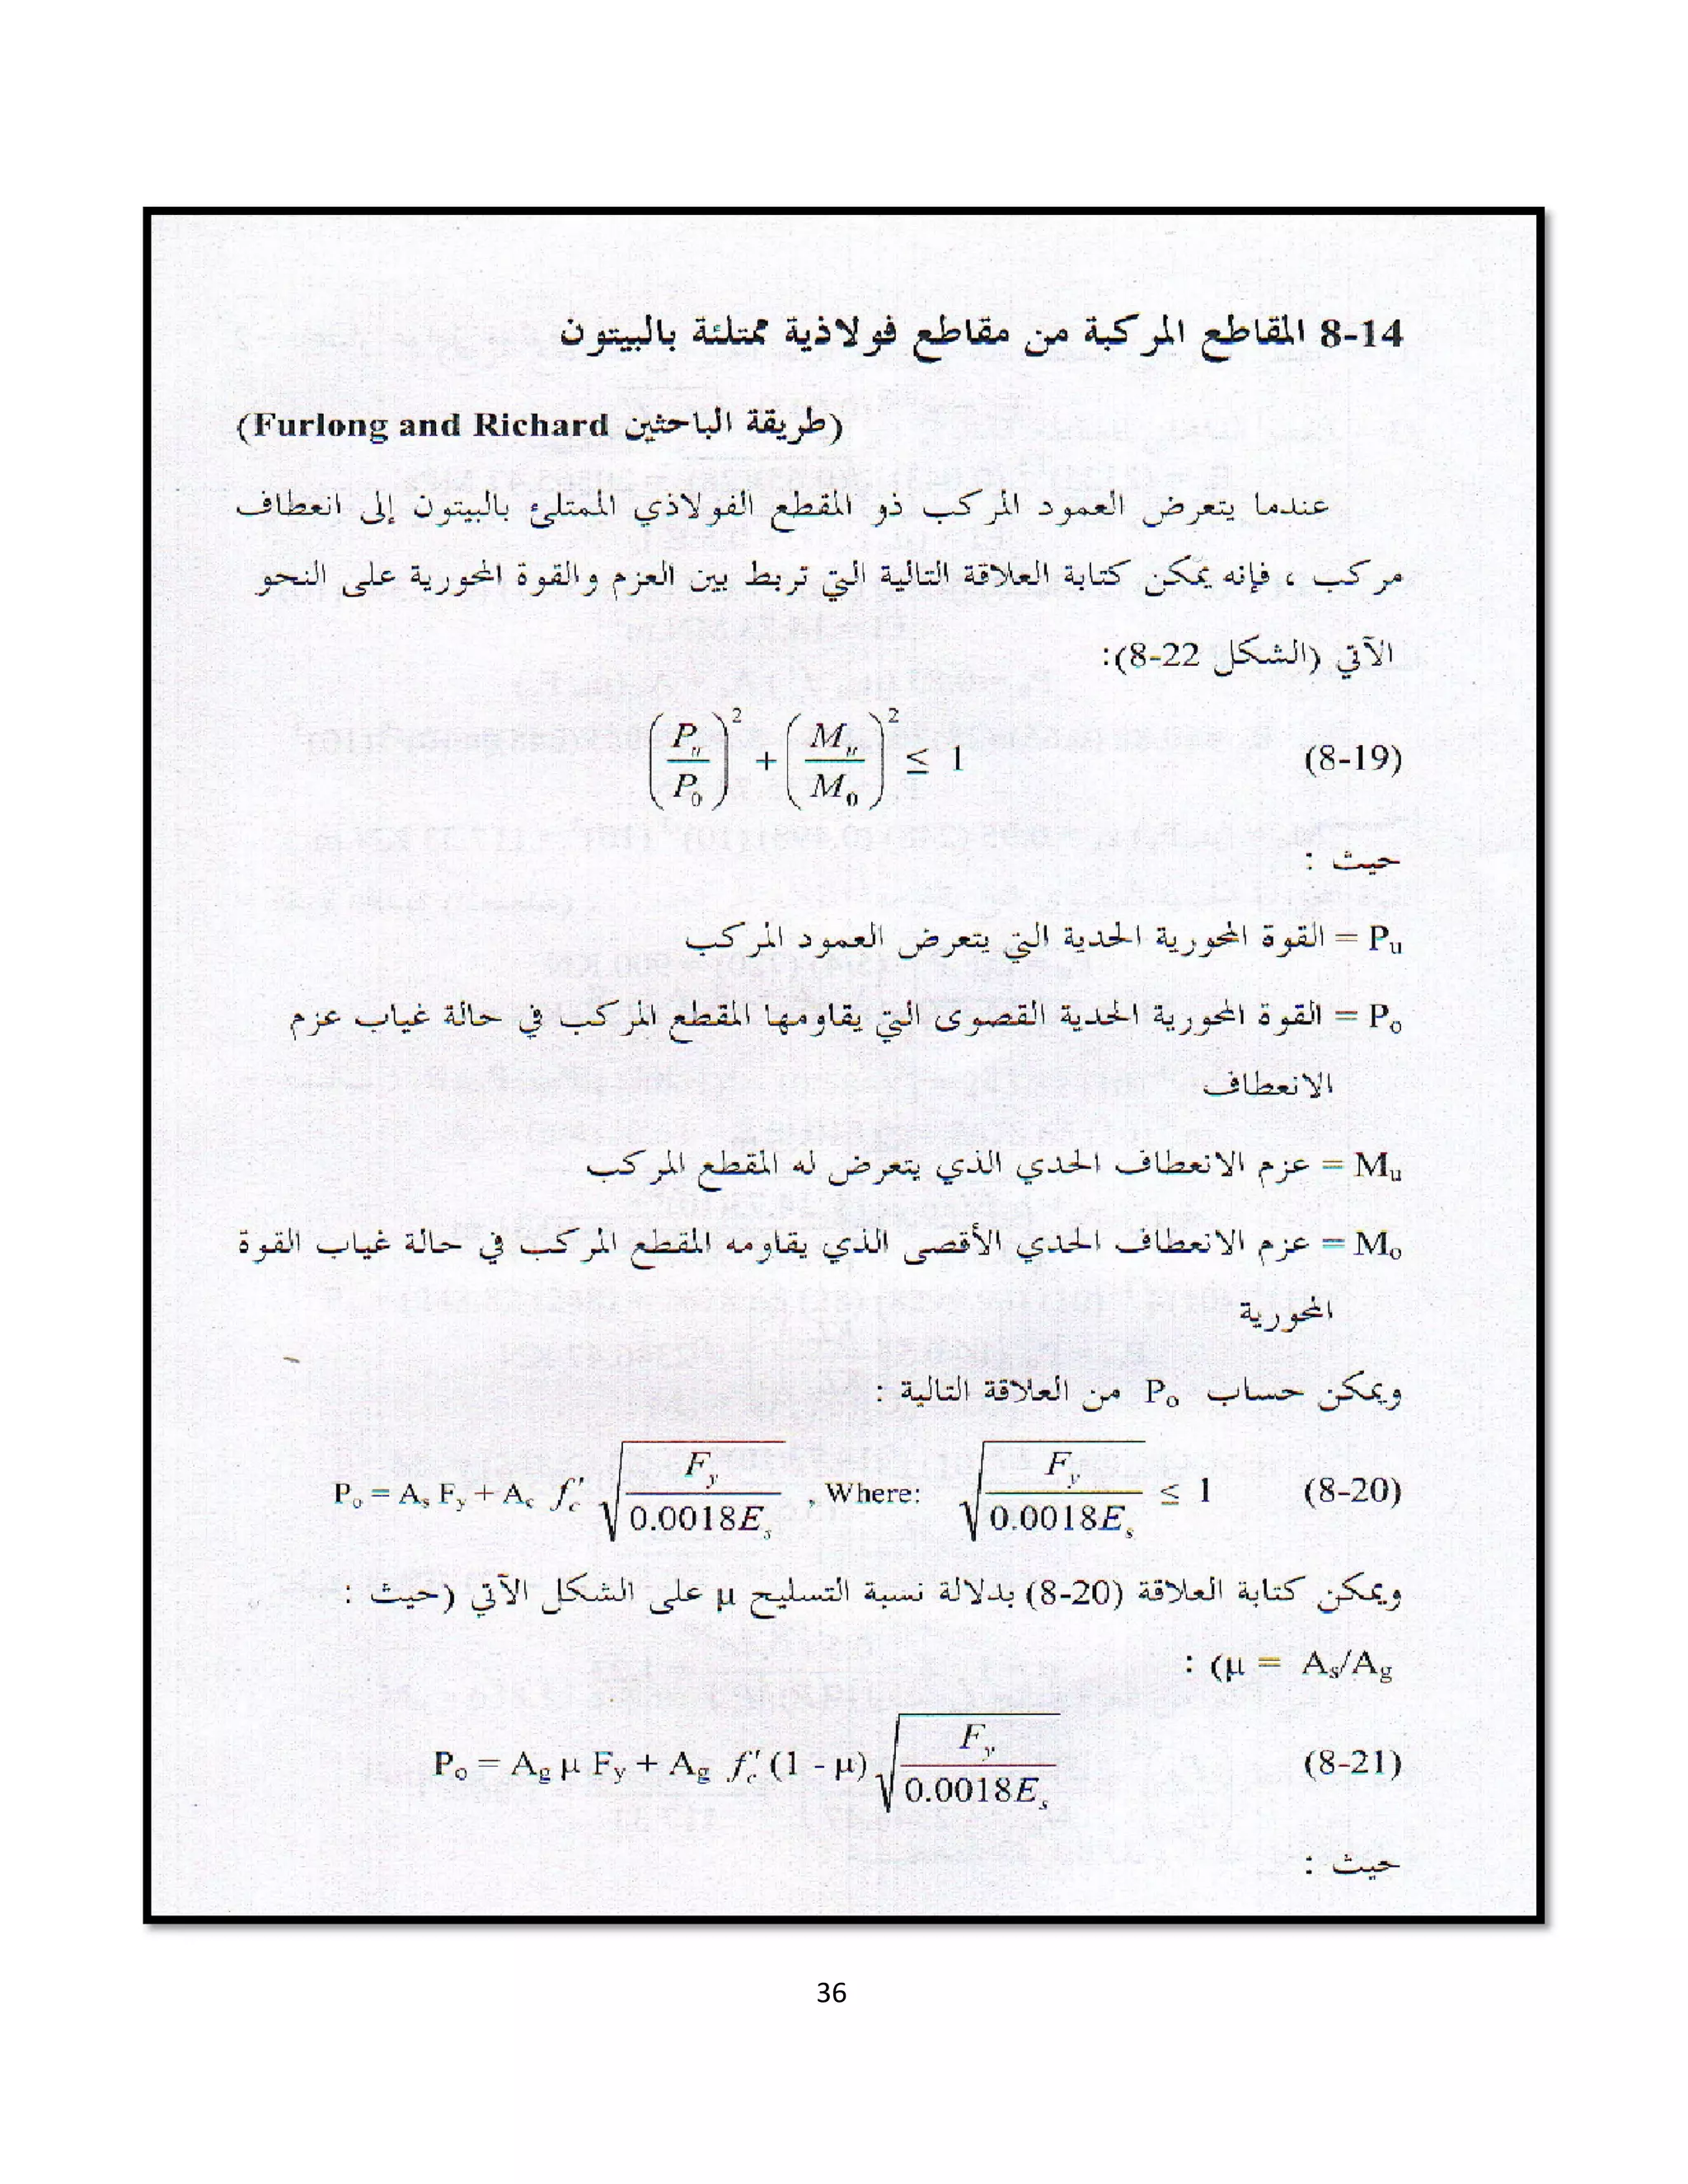 8-14 المقاطع المركبة من مقاطع فولاذية ممتلئة بالبيتون
(طريقة الباحثين Furlong and Richard)
عندما يتعرض العمود المركب ذو المقطع الفولاذي الممتلئ بالبيتون إلى انعطاف
مركب ، فإنه يمكن كتابة العلاقة التالية التي تربط بين العزم والقوة المحورية على النحو
الآتي (الشكل 22-8):
(P_u / P_0)^2 + (M_u / M_0)^2 ≤ 1 (8-19)
حيث :
P_u = القوة المحورية الحدية التي يتعرض العمود المركب
P_o = القوة المحورية الحدية القصوى التي يقاومها المقطع المركب في حالة غياب عزم
الانعطاف
M_u = عزم الانعطاف الحدي الذي يتعرض له المقطع المركب
M_o = عزم الانعطاف الحدي الأقصى الذي يقاومه المقطع المركب في حالة غياب القوة
المحورية
ويمكن حساب P_o من العلاقة التالية :
P_o = A_s F_y + A_c f'_c √(F_y / 0.0018E_s) , Where: √(F_y / 0.0018E_s) ≤ 1 (8-20)
ويمكن كتابة العلاقة (20-8) بدلالة نسبة التسليح µ على الشكل الآتي (حيث :
: (µ = A_s/A_g
P_o = A_g µ F_y + A_g f'_c (1 - µ) √(F_y / 0.0018E_s) (8-21)
حيث :
36